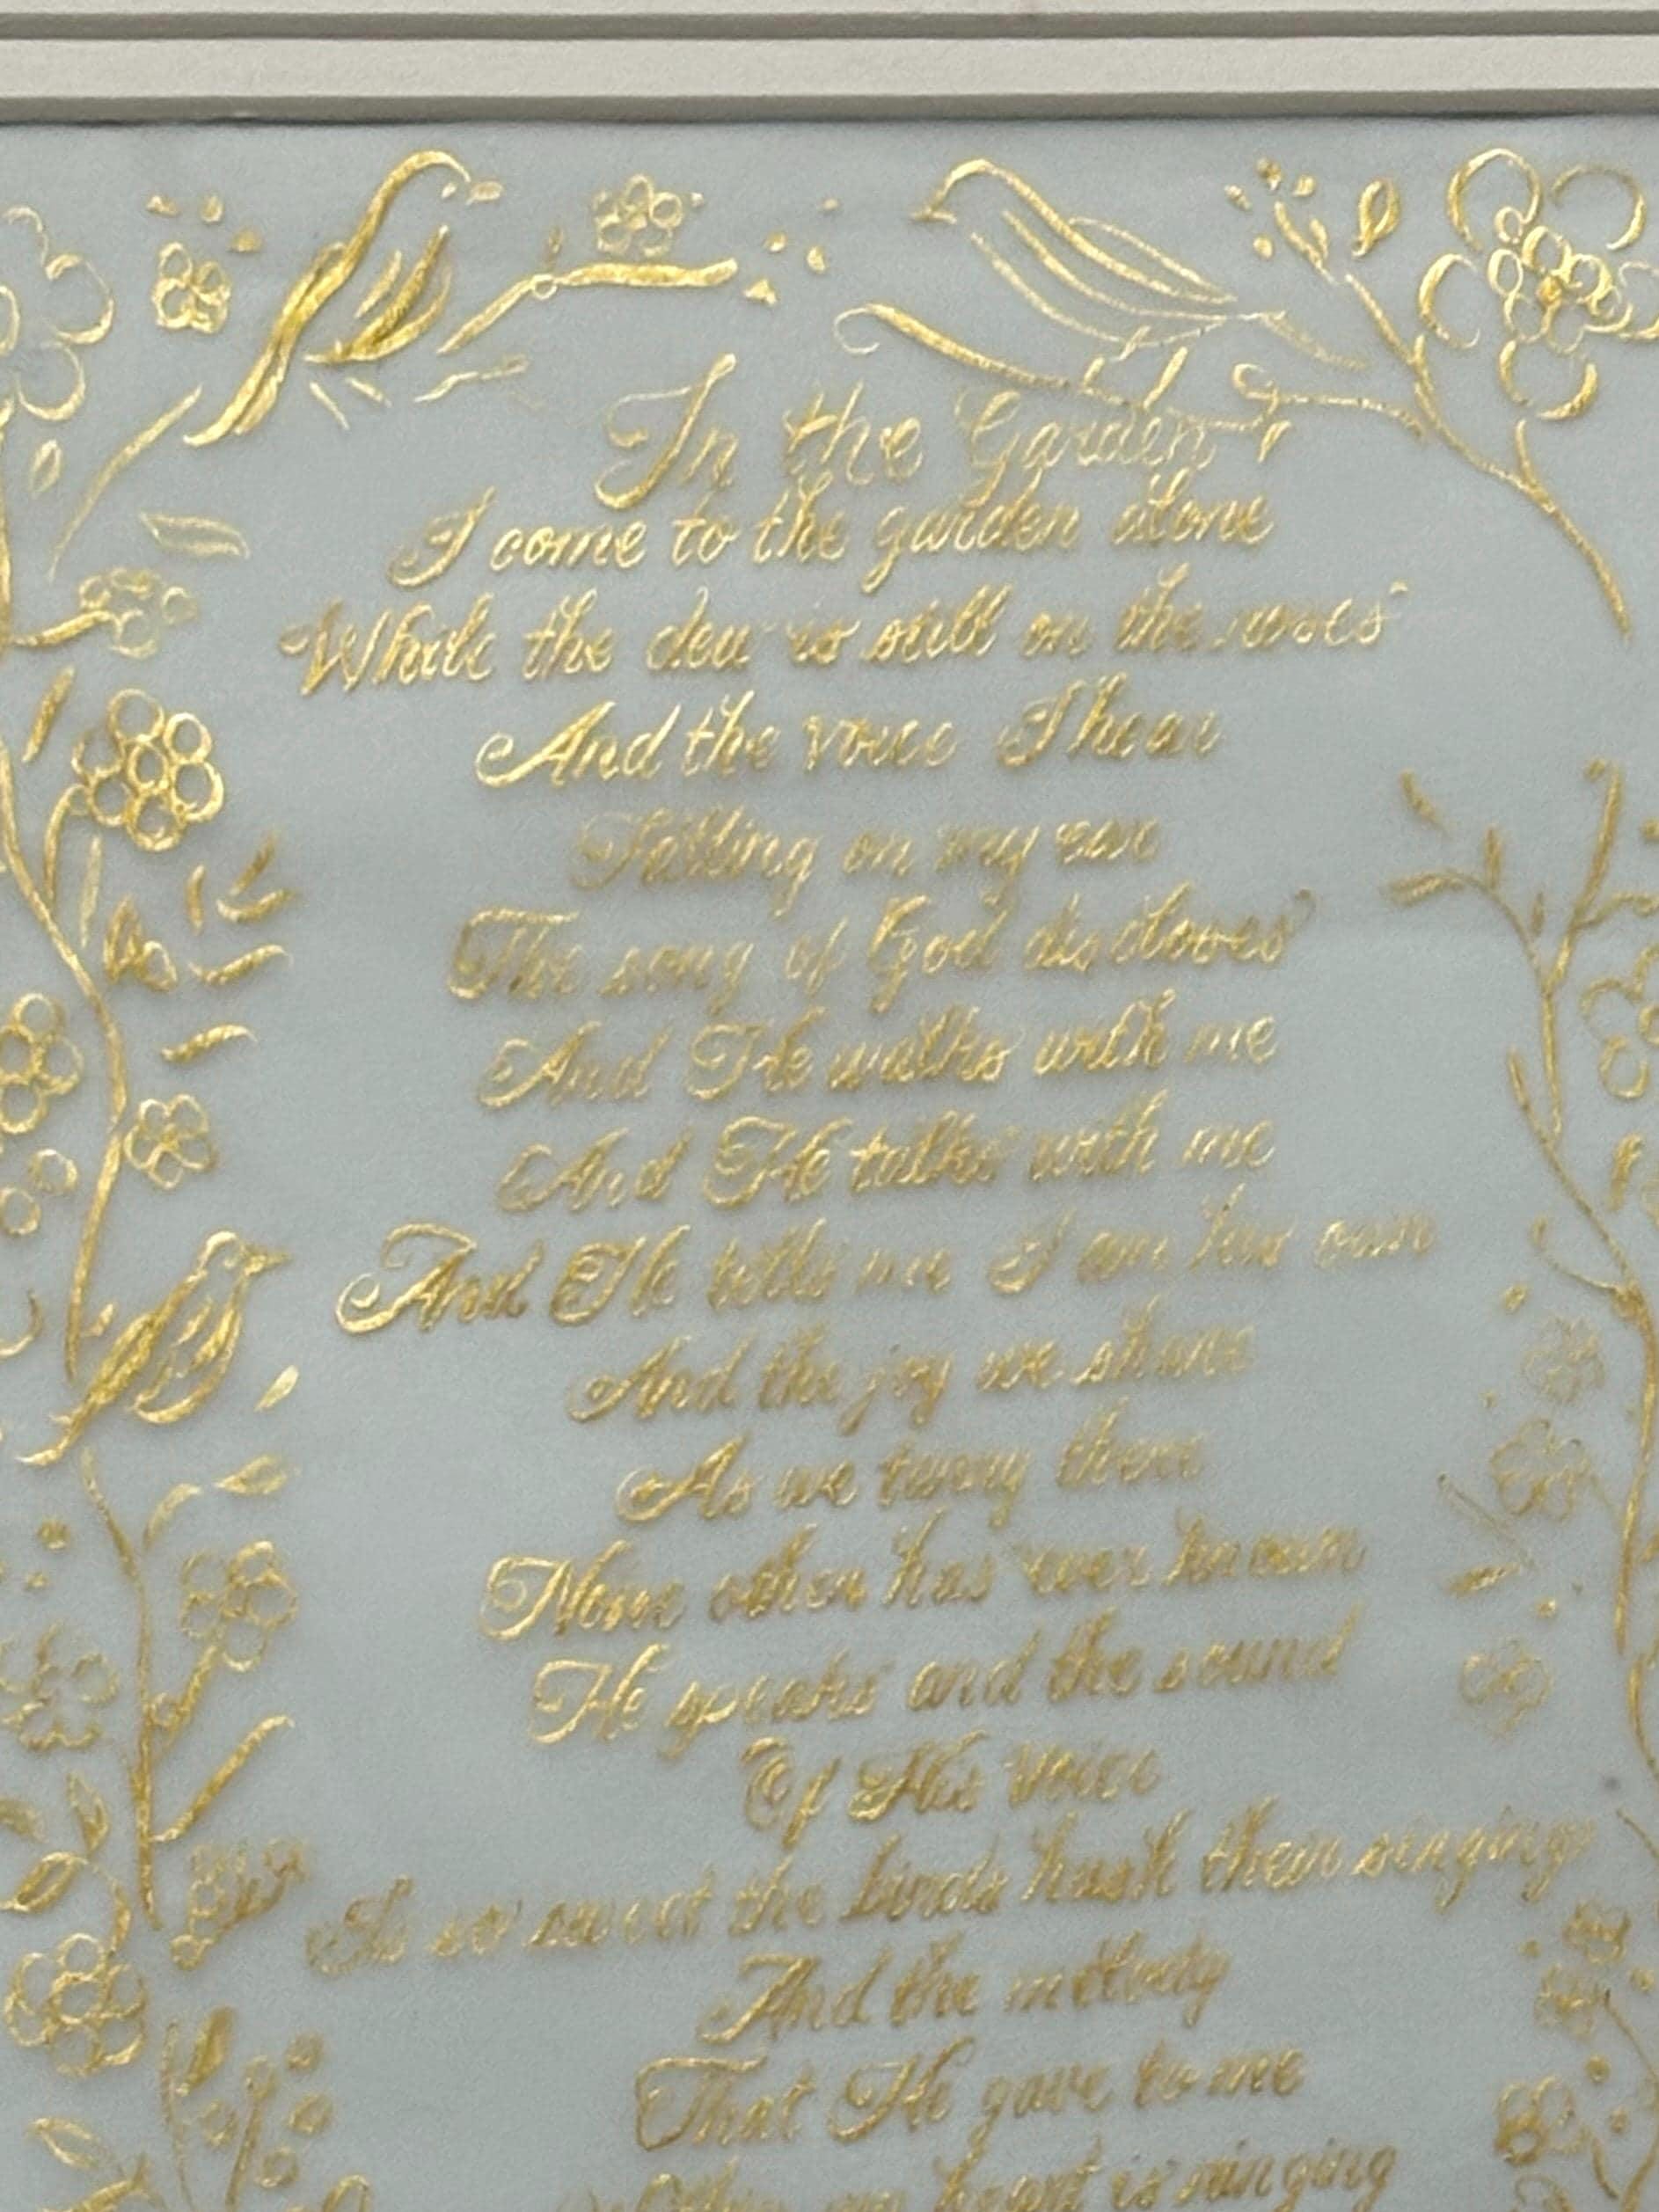 In the Garden
I come to the garden alone
While the dew is still on the roses
And the voice I hear
Falling on my ear
The song of God discloses
And He walks with me
And He talks with me
And He tells me I am his own
And the joy we share
As we tarry there
None other has ever known
He speaks and the sound
Of His voice
Is so sweet the birds hush their singing
And the melody
That He gave to me
Within my heart is ringing